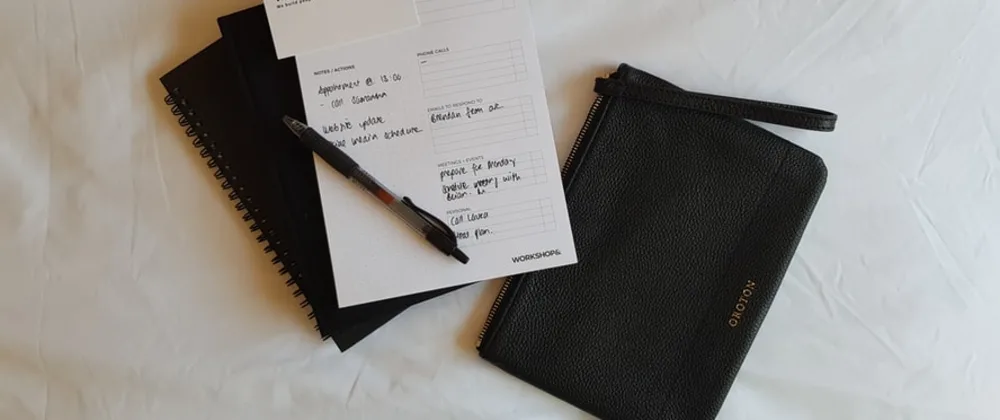 We build
NOTES / ACTIONS
Appointment @ 12:00
- Call Samantha
Website update
media schedule
PHONE CALLS
EMAILS TO RESPOND TO
Brendan from
MEETINGS + EVENTS
prepare for Monday
meeting with
Brian.
PERSONAL
Call Laura
Meal Plan.
WORKSHOP&.
OROTON